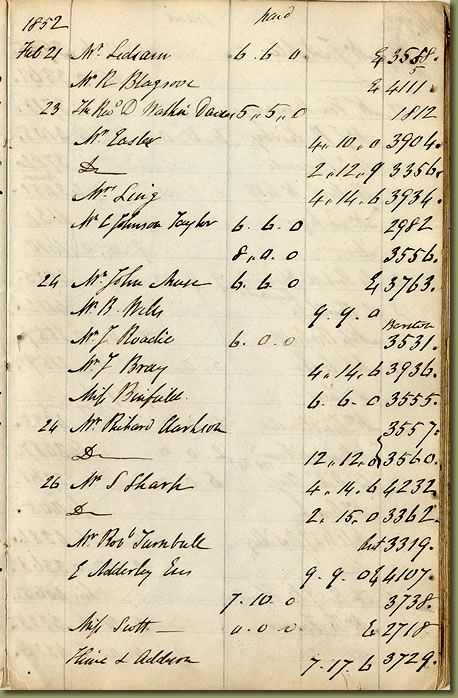 1852 hand
Feb 21 Mr Ledsam 6. 6 0. & 3588.
Mr R Blagrove & 4111. 5
23 The Revd D Walkin 5,, 5,, 0 1812
Mr Easter 4. 10. 0 3904.
Do 2. 12. 9 3356.
Mrs Ling 4. 14. 6 3934.
Mr E Johnson Taylor 6. 6. 0 2982
8,, 0. 0 3556.
24 Mr John Muse 6. 6. 0 & 3763.
Mr B. Wells 9. 9. 0
Mr J Roadie 6. 0. 0 3531.
Mr J Bray 4. 14. 6 3936.
Miss Binfield. 6. 6. 0 3555.
24 Mr Richard Clarkson 3557.
Do 12,, 12,, 0 3560.
26 Mr S Shark 4. 14. 6 4232
Do 2. 15. 0 3362.
Mr Robt Turnbull 3319.
E Adderley Esq 9. 9. 0 & 4107.
7. 10. 0 3738.
Miss Scott 0. 0. 0 & 2718
Hime & Addison 7. 17. 6 3729.